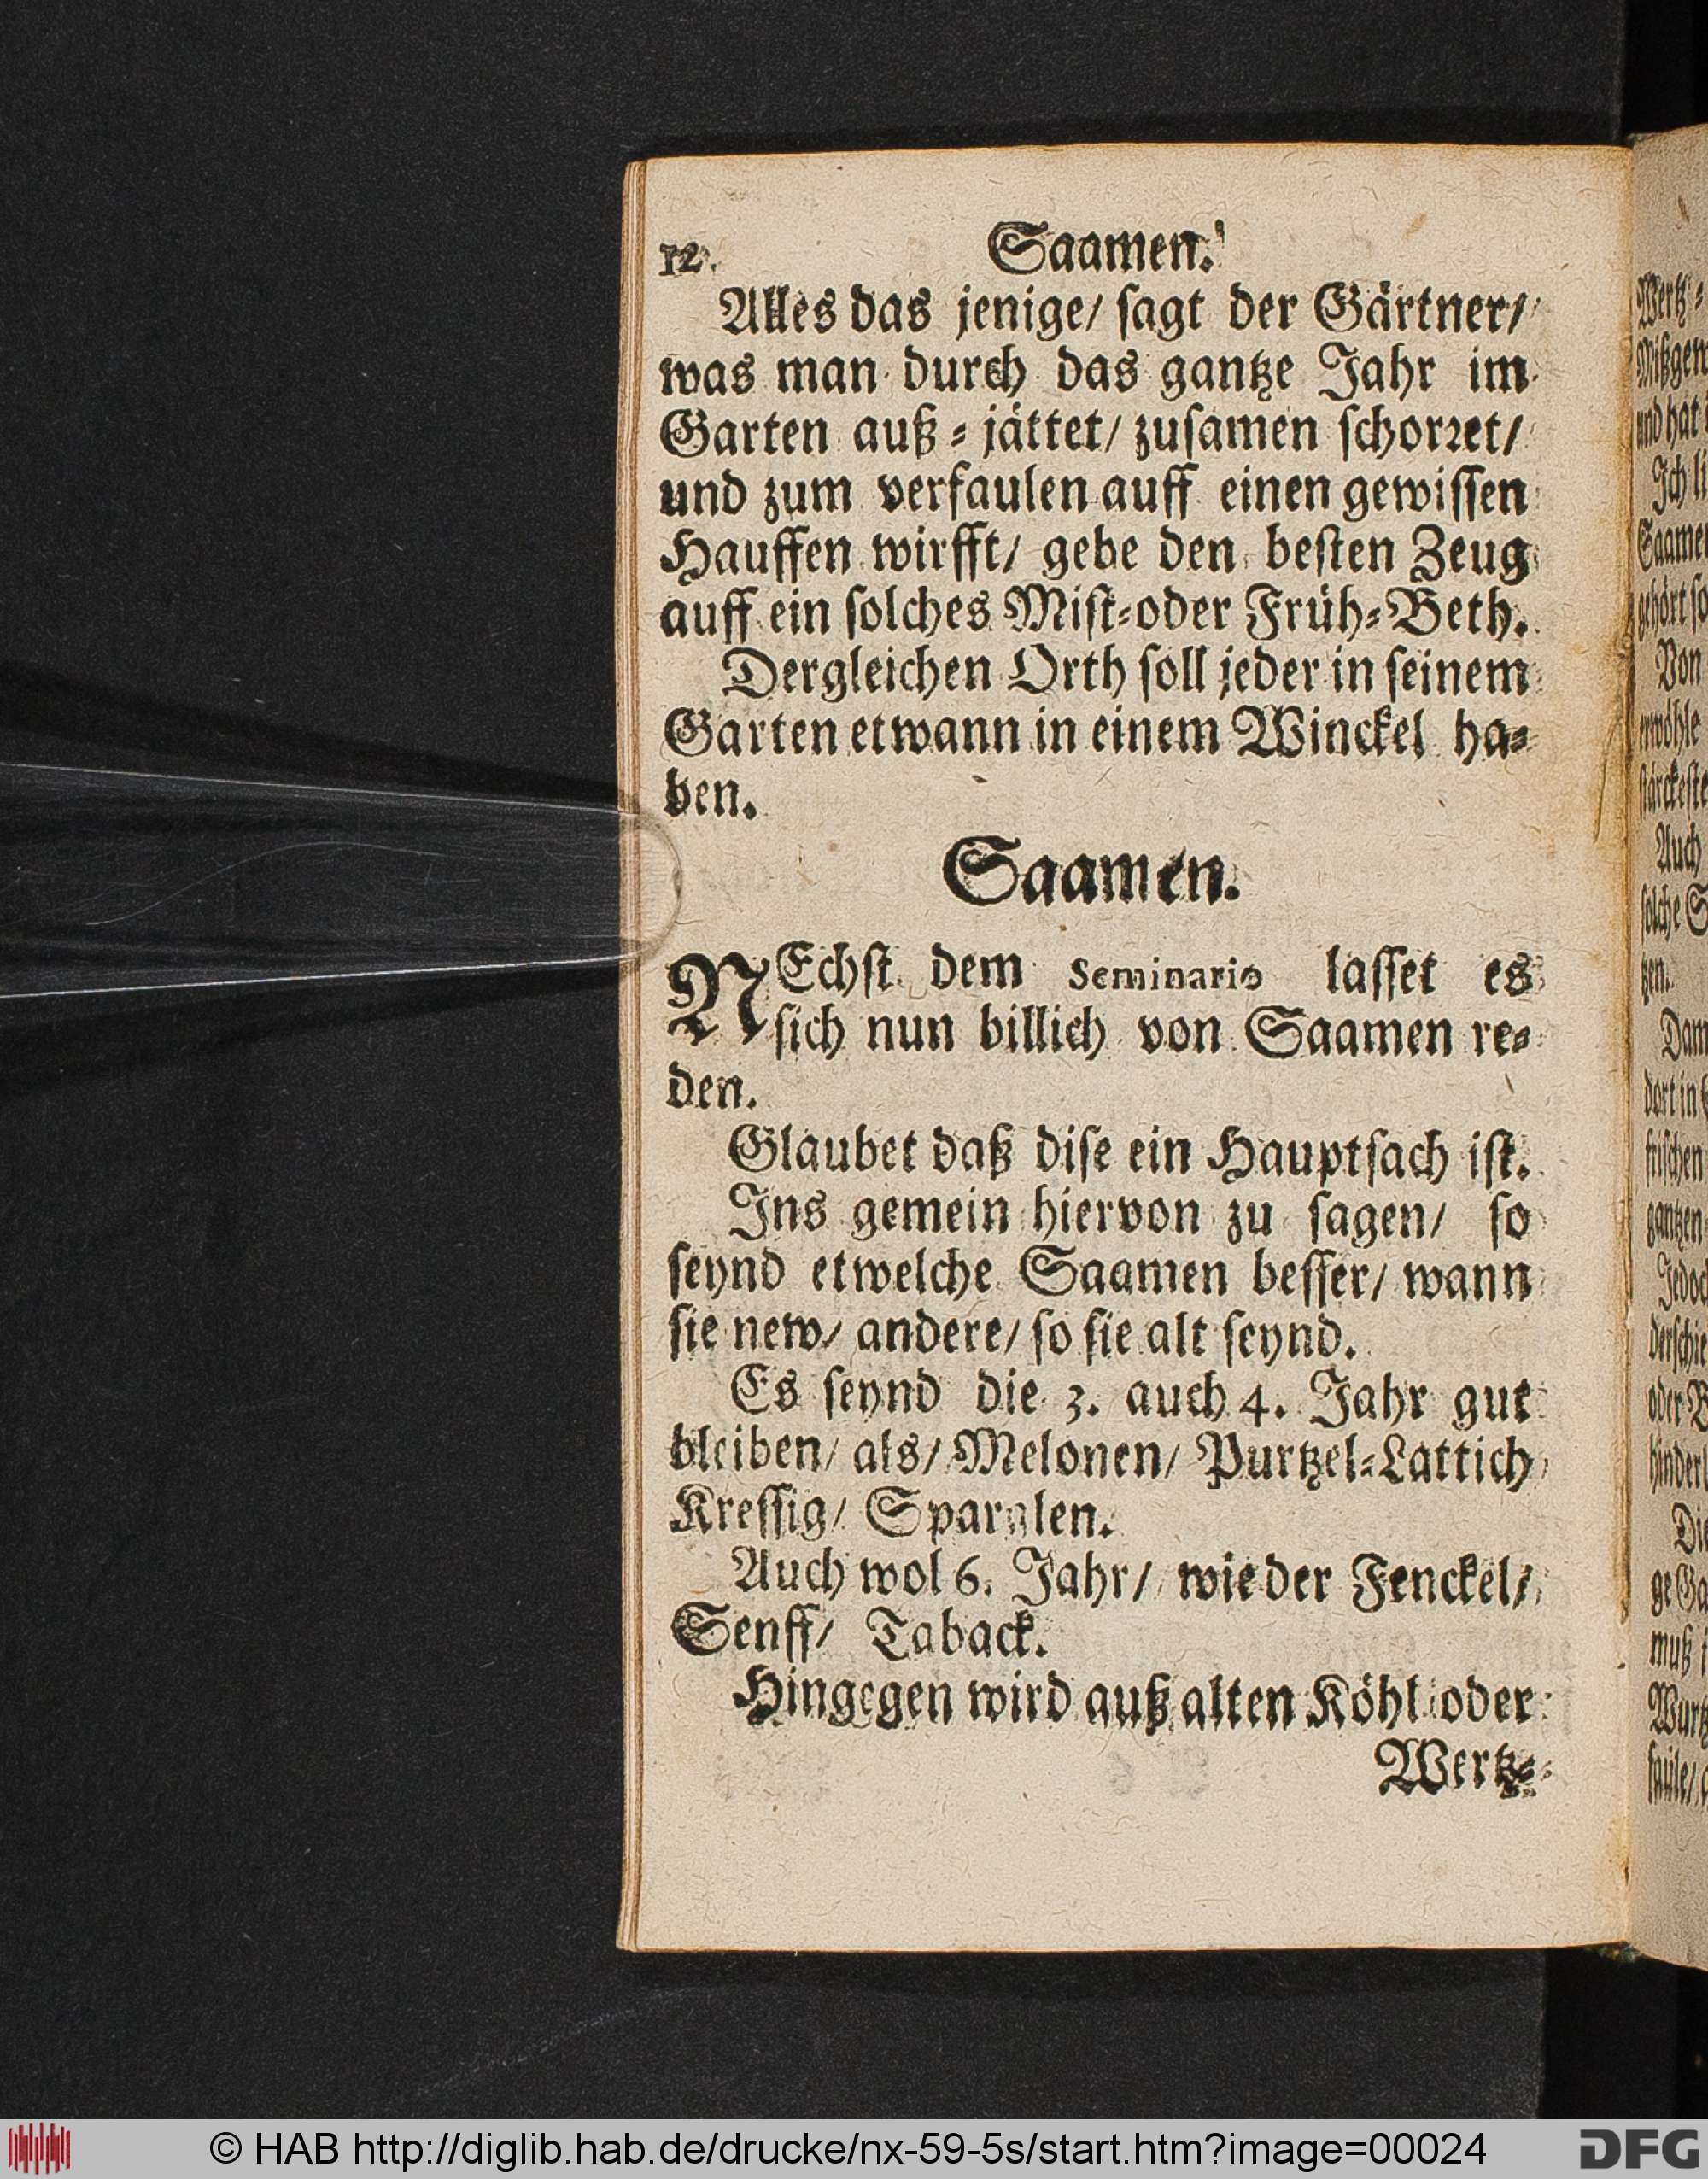 12. Saamen.
Alles das jenige/ sagt der Gärtner/
was man durch das gantze Jahr im
Garten auß-jättet/ zusamen schorret/
und zum verfaulen auff einen gewissen
Hauffen wirfft/ gebe den besten Zeug
auff ein solches Mist-oder Früh-Beth.
Dergleichen Orth soll jeder in seinem
Garten etwann in einem Winckel ha-
ben.
Saamen.
NEchst dem Seminario lasset es
sich nun billich von Saamen re-
den.
Glaubet daß dise ein Hauptsach ist.
Ins gemein hiervon zu sagen/ so
seynd etwelche Saamen besser/ wann
sie new/ andere/ so sie alt seynd.
Es seynd die 3. auch 4. Jahr gut
bleiben/ als/ Melonen/ Purtzel-Lattich
Kressig/ Sparglen.
Auch wol 6. Jahr/ wie der Fenckel/
Senff/ Taback.
Hingegen wird auß alten Köhl oder
Wertz-
Wertz-
Mißgen
und hat
Ich li
Saamen
gehört so
Von
erwöhle
stärckeste
Auch
solche S
tzen.
Dam
dort in
frischen
gantzen
Jedoch
derschie
oder B
hinderl
Die
ge Ga
muß i
Wurtz
faule/
© HAB http://diglib.hab.de/drucke/nx-59-5s/start.htm?image=00024
DFG